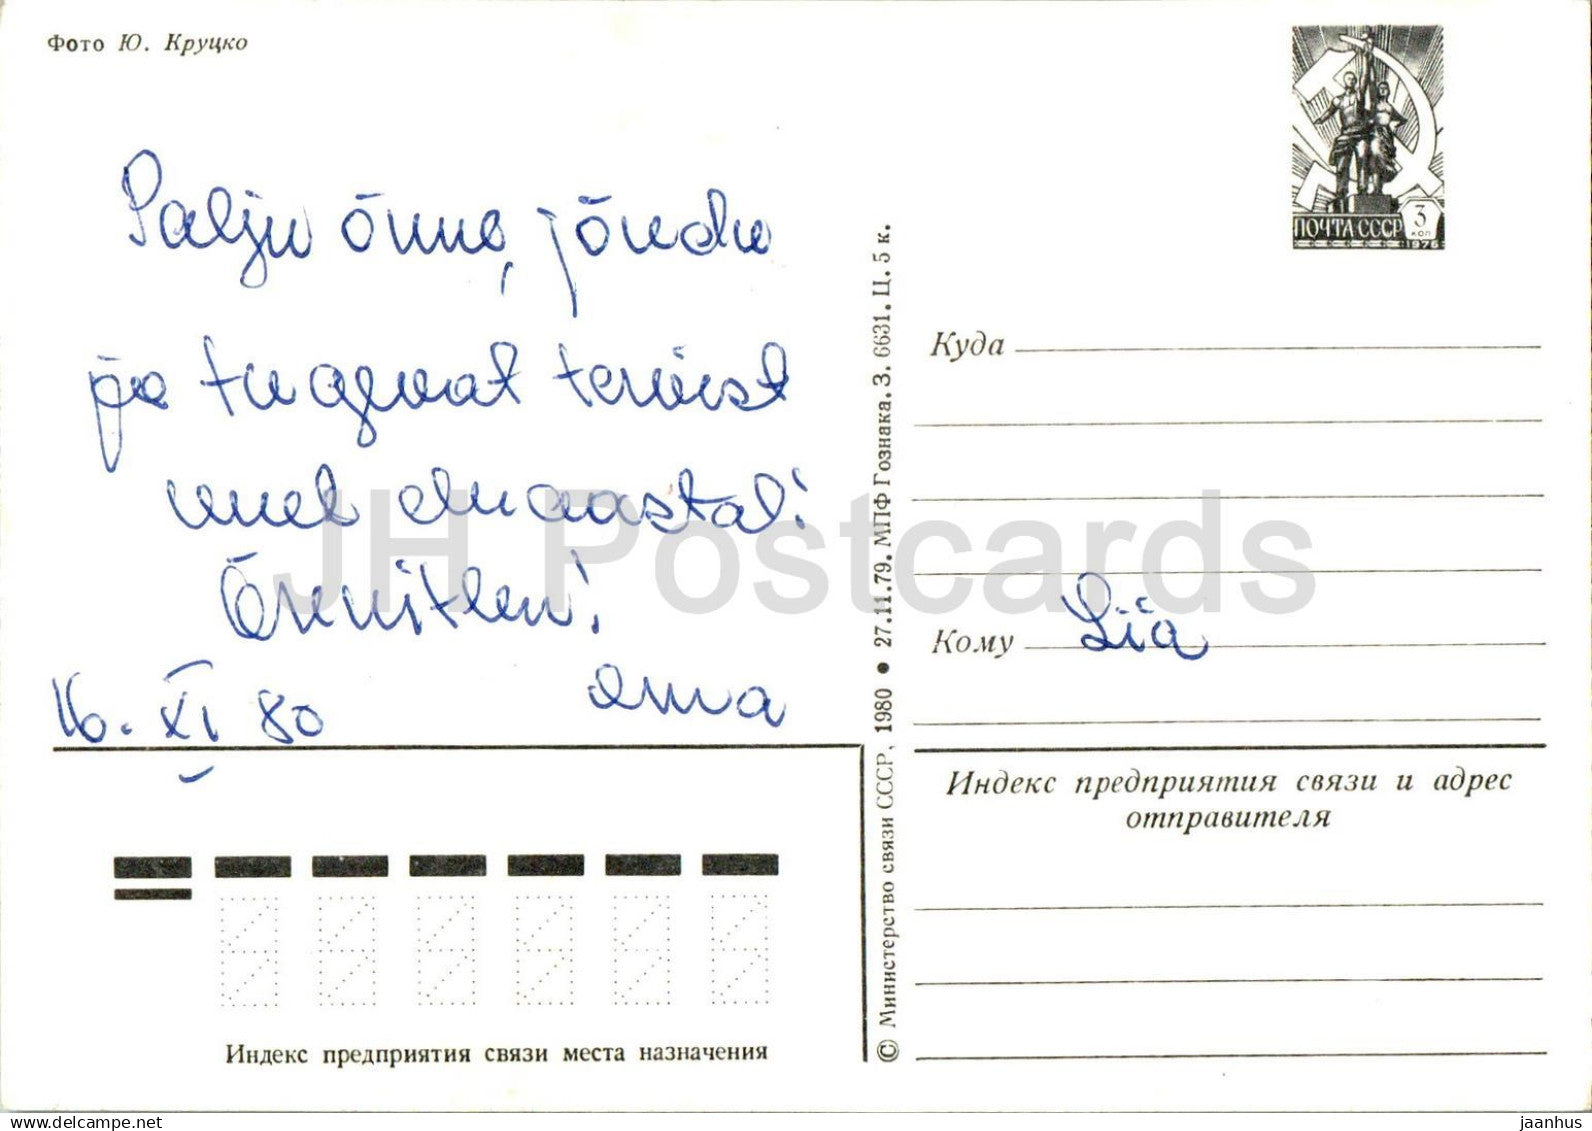 Фото Ю. Круцко
ПОЧТА СССР 3 КОП 1976
Palju õnne, jõudu
ja tugevat tervist
uuel eluaastal!
Õnnitleu!
ema
16. XI 80
Куда
Кому Lia
Индекс предприятия связи и адрес
отправителя
Индекс предприятия связи места назначения
© Министерство связи СССР, 1980 ● 27.11.79. МПФ Гознака. З. 6631. Ц. 5 к.
JH Postcards
www.delcampe.net
jaanhus